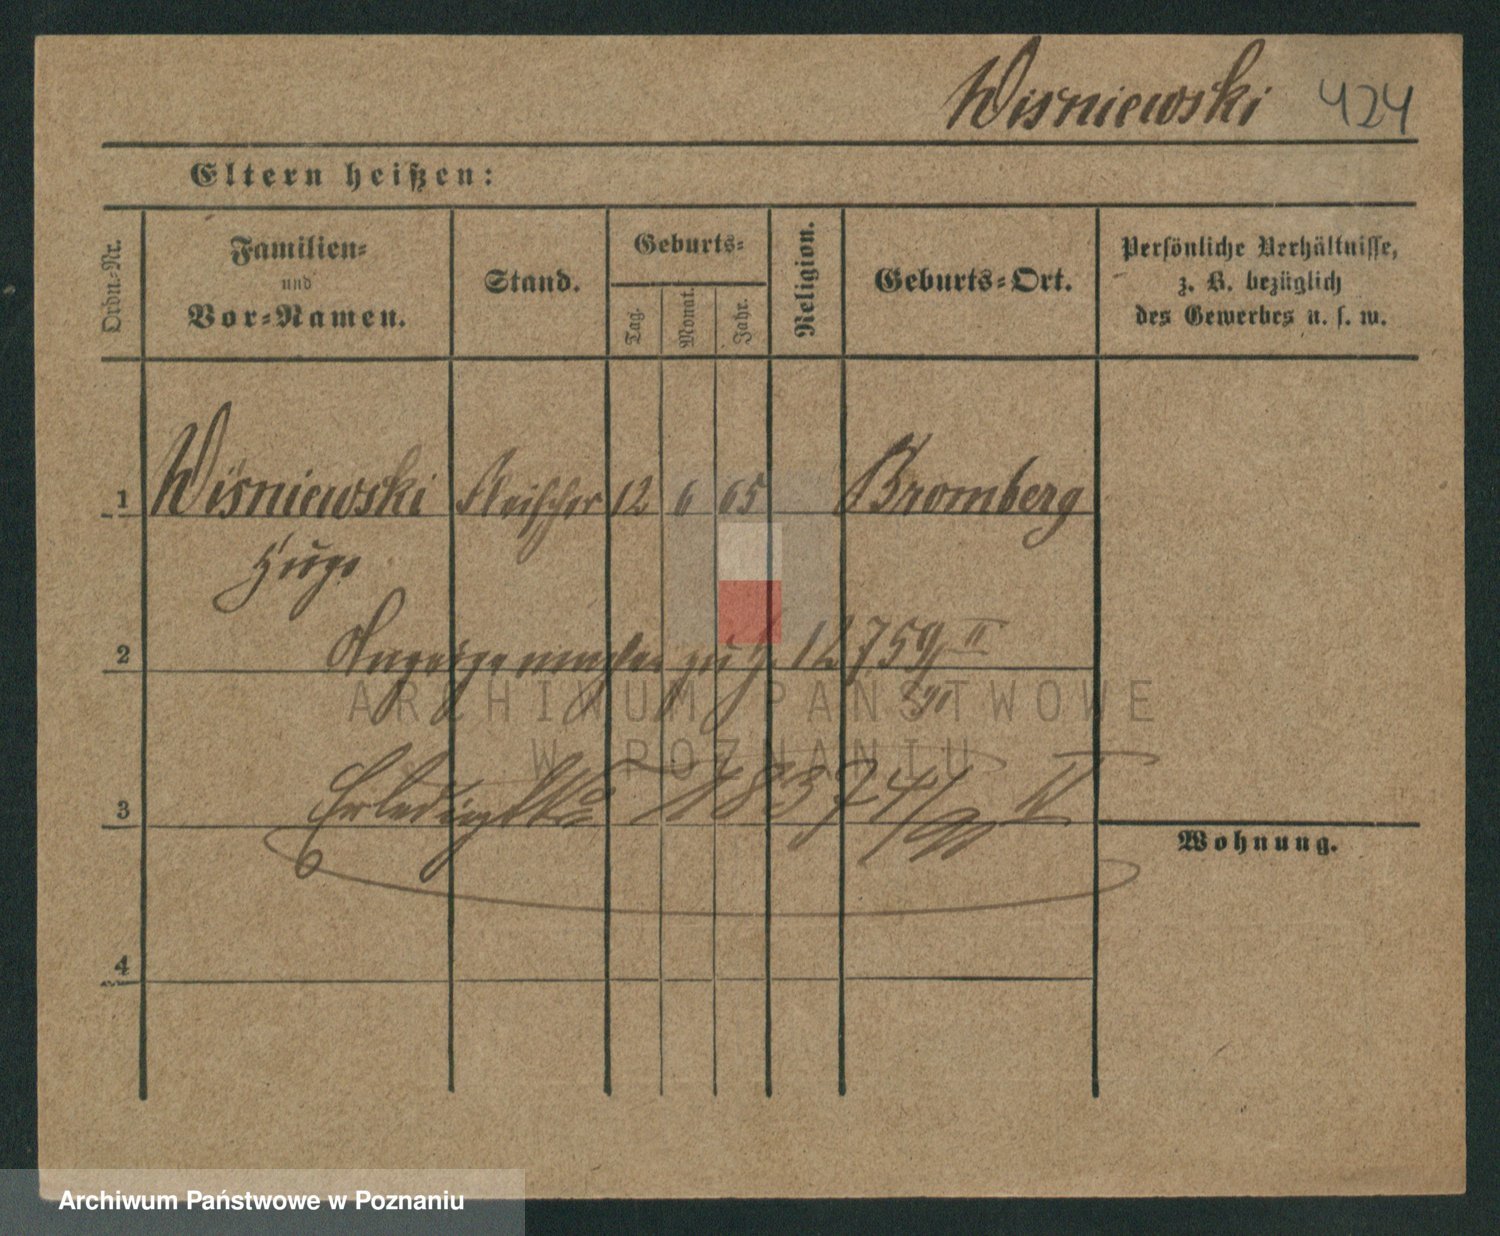 Wisniewski 424
Eltern heißen:
Ordn.-Nr.
Familien-
und
Vor-Namen.
Stand.
Geburts-
Tag.
Monat.
Jahr.
Religion.
Geburts-Ort.
Persönliche Verhältnisse,
z. B. bezüglich
des Gewerbes u. s. w.
1 Wisniewski Fleischer 12 6 65 Bromberg
Hugo
2 Anzeige zu J. 12759 II
90
ARCHIWUM PAŃSTWOWE
W POZNANIU
3 Erledigt 18374/90 II
Wohnung.
4
Archiwum Państwowe w Poznaniu